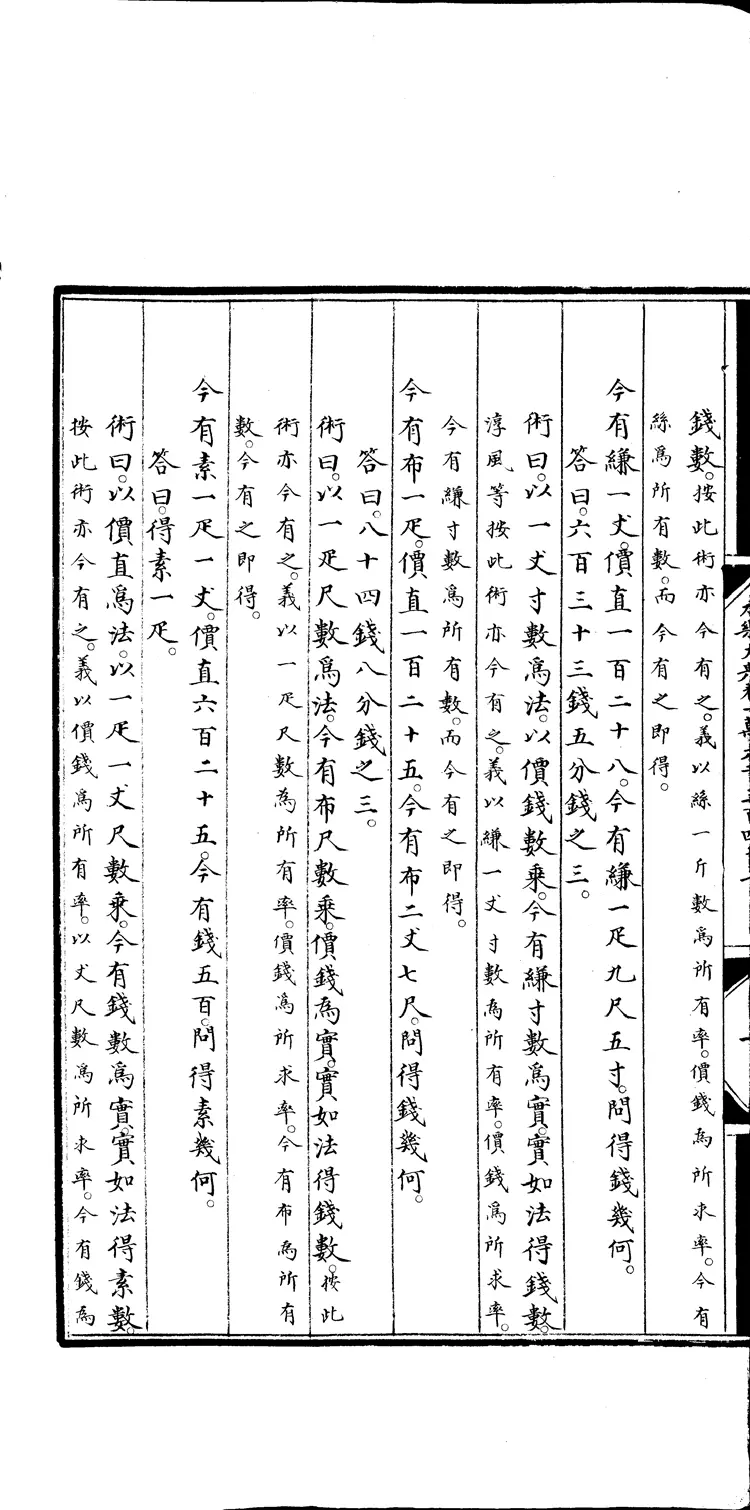 錢數。按此術亦今有之。義以絲一斤數爲所有率。價錢為所求率。今有
絲爲所有數。而今有之即得。
今有縑一丈。價直一百二十八。今有縑一疋九尺五寸。問得錢幾何。
答曰。六百三十三錢五分錢之三。
術曰。以一丈寸數爲法。以價錢數乘。今有縑寸數爲實。實如法得錢數。
淳風等按此術亦今有之。義以縑一丈寸數為所有率。價錢爲所求率。
今有縑寸數爲所有數。而今有之即得。
今有布一疋。價直一百二十五。今有布二丈七尺。問得錢幾何。
答曰。八十四錢八分錢之三。
術曰。以一疋尺數爲法。今有布尺數乘。價錢為實。實如法得錢數。按此
術亦今有之。義以一疋尺數為所有率。價錢爲所求率。今有布為所有
數。今有之即得。
今有素一疋一丈。價直六百二十五。今有錢五百。問得素幾何。
答曰。得素一疋。
術曰。以價直爲法。以一疋一丈尺數乘。今有錢數爲實。實如法得素數。
按此術亦今有之。義以價錢爲所有率。以丈尺數爲所求率。今有錢為